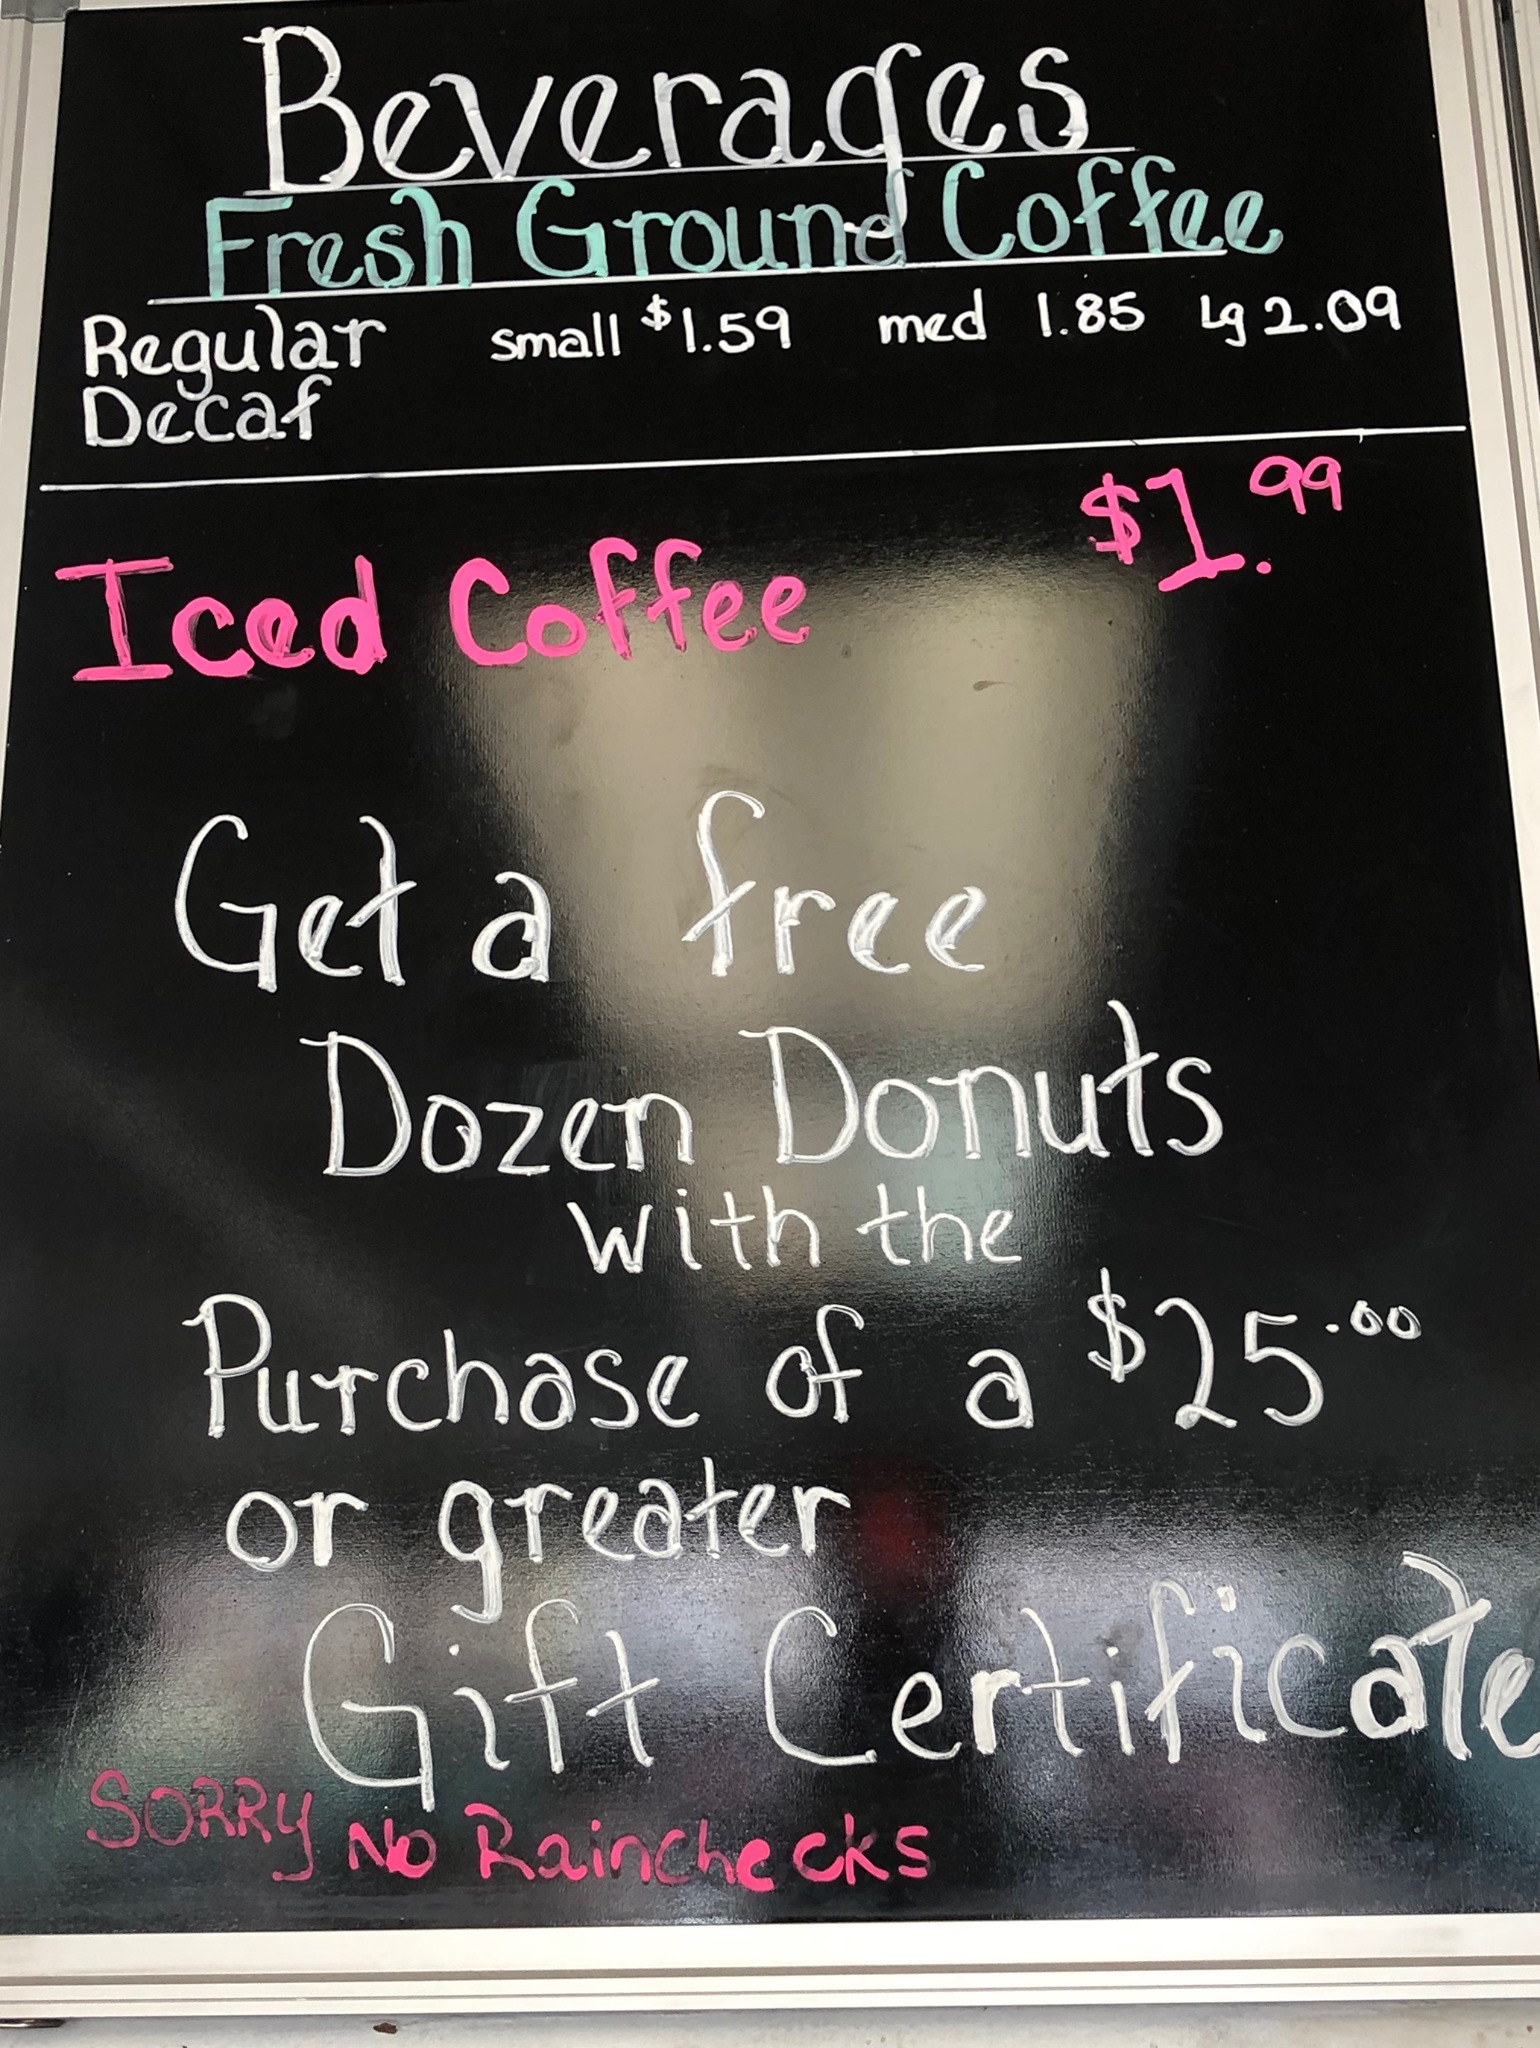 Beverages
Fresh Ground Coffee
Regular small $1.59 med 1.85 Lg 2.09
Decaf
Iced Coffee $1.99
Get a free
Dozen Donuts
with the
Purchase of a $25.00
or greater
Gift Certificate
SORRY No Rainchecks